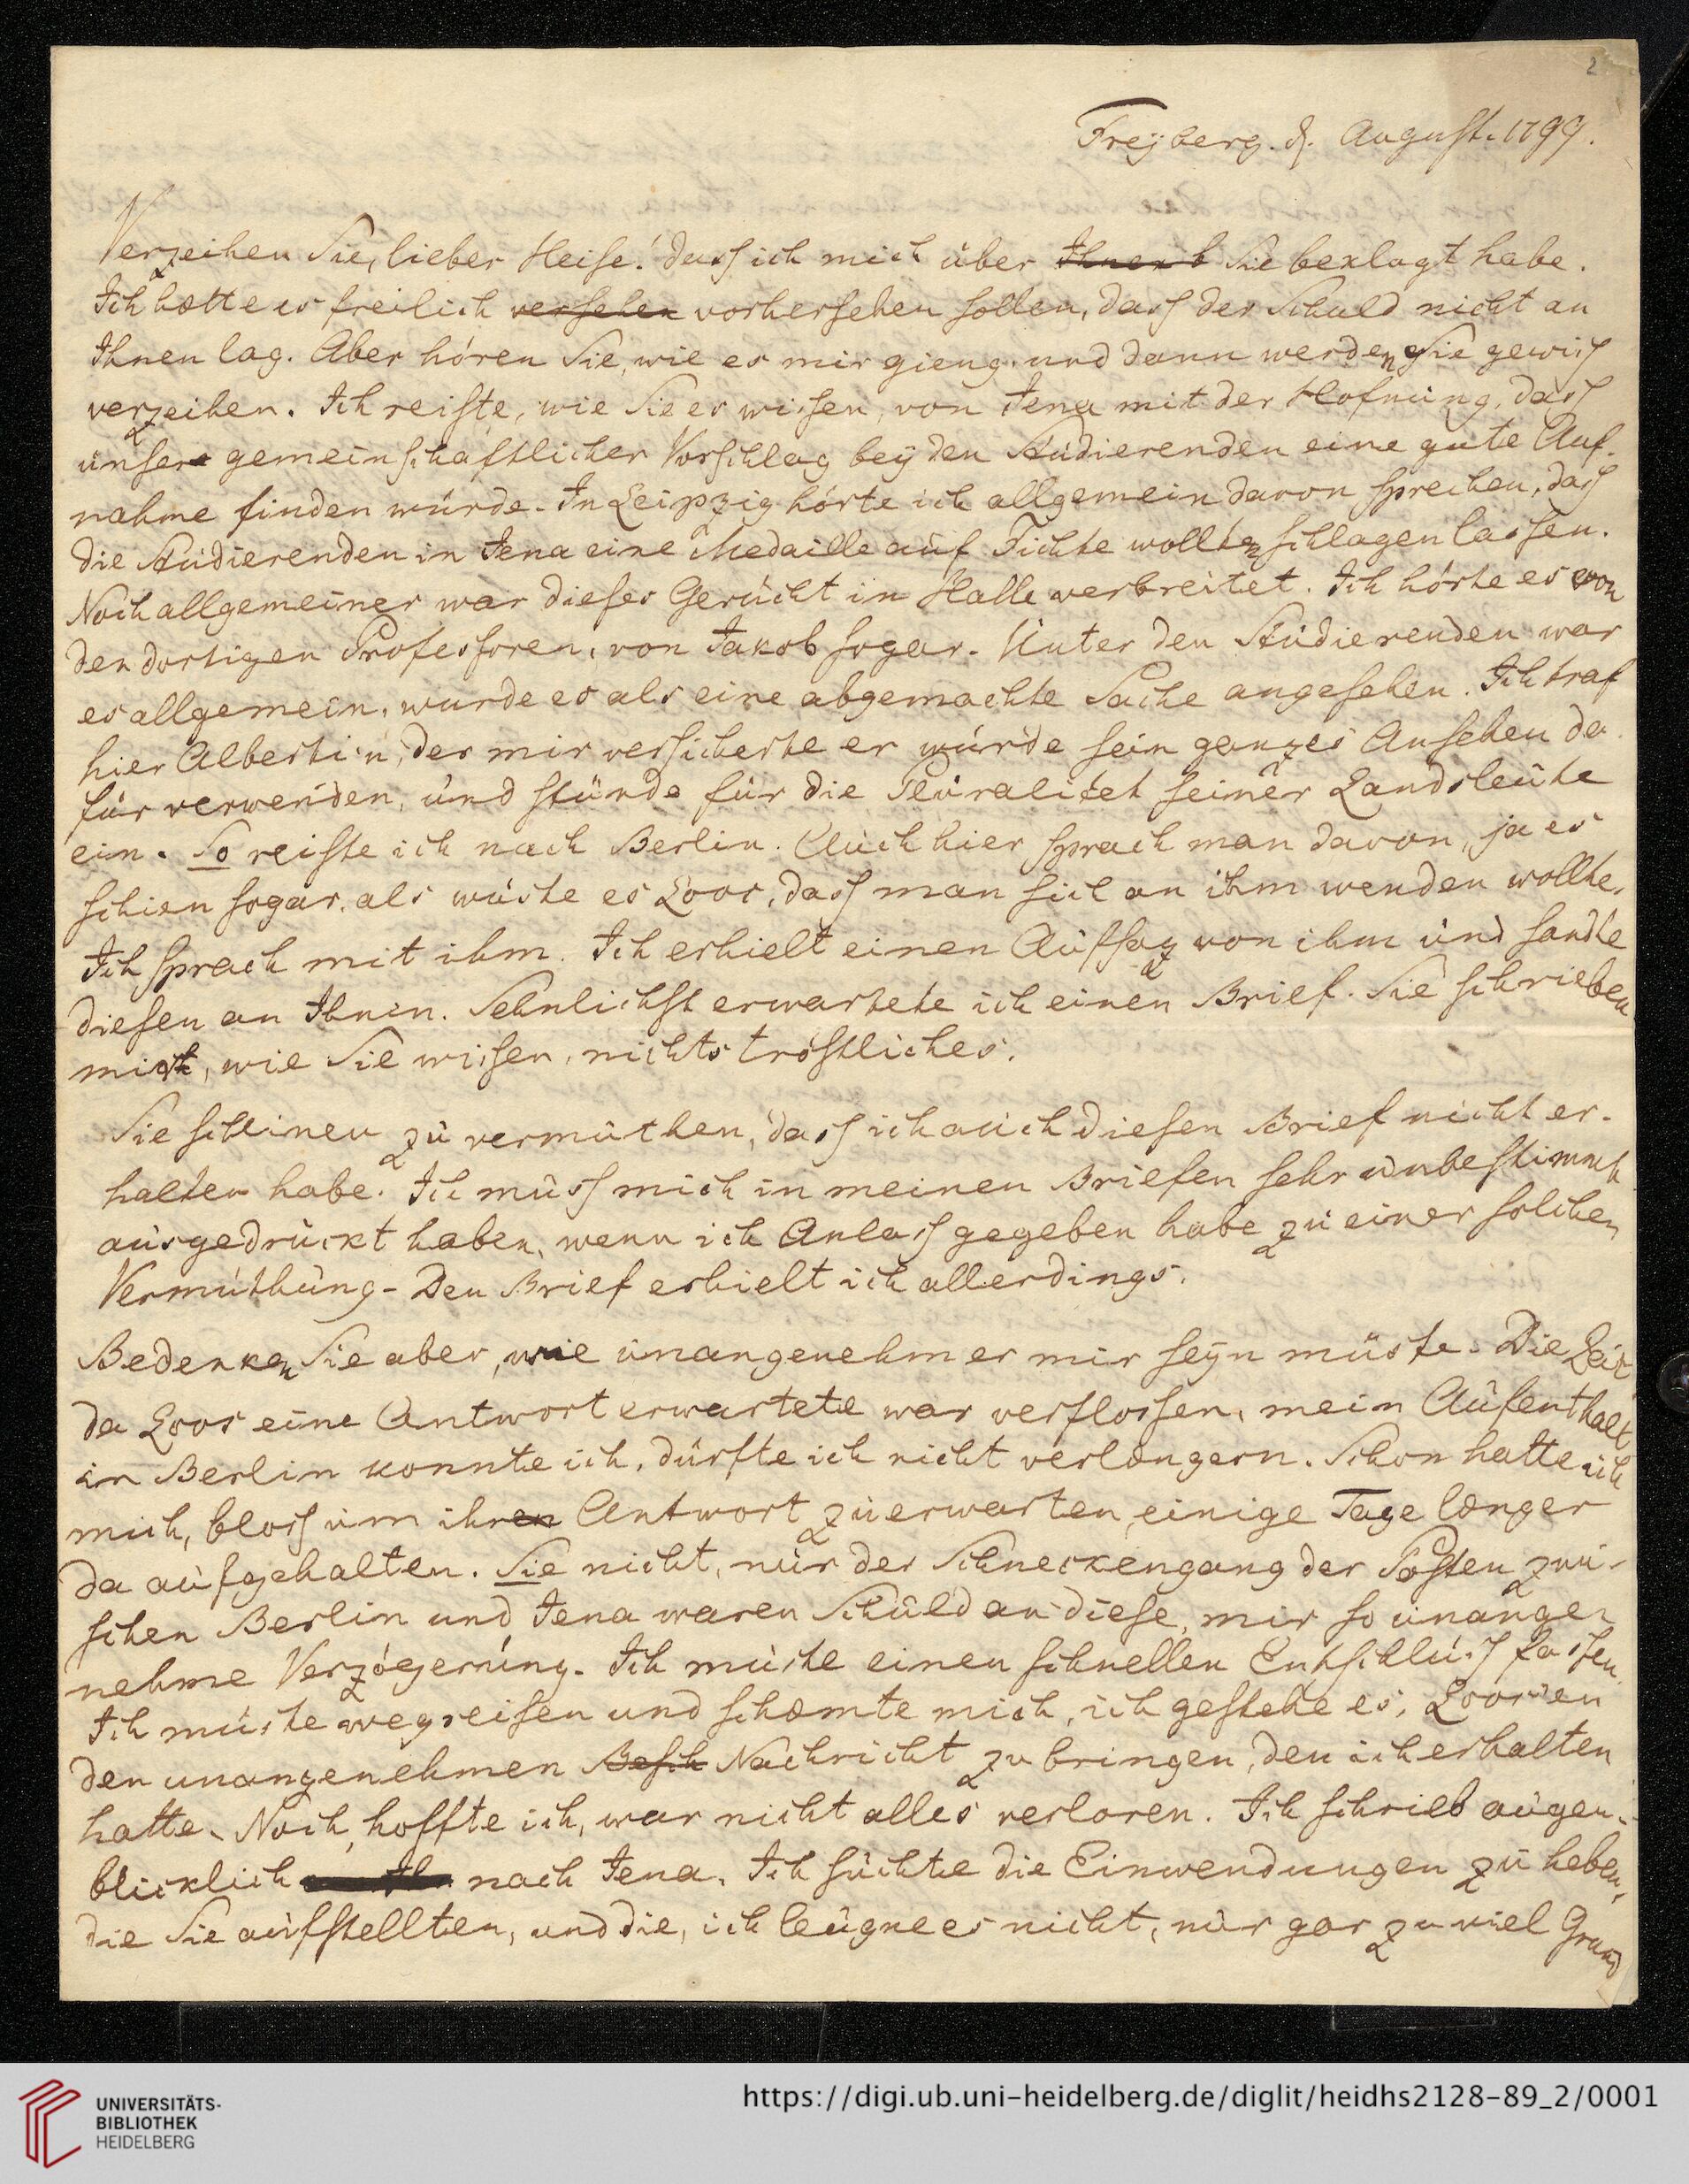 2
Freyberg. d. August. 1799.
Verzeihen Sie, lieber Heise! dass ich mich über Ihnen b Sie beklagt habe.
Ich hætte es freilich versehen vorhersehen sollen, dass der Schuld nicht an
Ihnen lag. Aber hören Sie, wie es mir gieng. und dann werden Sie gewiss
verzeihen. Ich reiste, wie Sie es wissen, von Jena mit der Hofnung, dass
unser gemeinschaftlicher Vorschlag bey den Studierenden eine gute Auf-
nahme finden würde. In Leipzig hörte ich allgemein davon sprechen, dass
die Studierenden in Jena eine Medaille auf Fichte wollten schlagen lassen.
Noch allgemeiner war dieses Gerücht in Halle verbreitet. Ich hörte es von
den dortigen Professoren, von Jakob sogar. Unter den Studierenden war
es allgemein, wurde es als eine abgemachte Sache angesehen. Ich traf
hier Albertin, der mir versicherte er würde sein ganzes Ansehen da
für verwenden, und stünde für die Pluralitet seiner Landsleute
ein. So reiste ich nach Berlin. Auch hier sprach man davon, ja es
schien sogar, als wüste es Loos, dass man sich an ihm wenden wollte.
Ich sprach mit ihm. Ich erhielt einen Aufsaz von ihm und sandte
diesen an Ihnen. Sehnlichst erwartete ich einen Brief. Sie schrieben
mir, wie Sie wissen, nichts tröstliches.
Sie scheinen zu vermuthen, dass ich auch diesen Brief nicht er-
halten habe. Ich muss mich in meinen Briefen sehr unbestimmt
ausgedrückt haben, wenn ich Anlass gegeben habe zu einer solchen
Vermuthung - Den Brief erhielt ich allerdings.
Bedenken Sie aber, wie unangenehm er mir seyn müste. Die Zeit
da Loos eine Antwort erwartete war verflossen, mein Aufenthalt
in Berlin konnte ich, durfte ich nicht verlængern. Schon hatte ich
mich, bloss um ihren Antwort zu erwarten, einige Tage længer
da aufgehalten. Sie nicht, nur der Schneckengang der Posten zwi-
schen Berlin und Jena waren Schuld an diese, mir so unange-
nehme Verzögerung. Ich muste einen schnellen Entschluss fassen
Ich muste wegreisen und schæmte mich, ich gestehe es, Loosen
den unangenehmen Besch Nachricht zu bringen, den ich erhalten
hatte. Noch, hoffte ich, war nicht alles verloren. Ich schrieb augen-
blicklich nach Jena. Ich suchte die Einwendungen zu heben,
die Sie aufstellten, und die, ich leugne es nicht, nur gar zu viel Grund
UNIVERSITÄTS-
BIBLIOTHEK
HEIDELBERG
https://digi.ub.uni-heidelberg.de/diglit/heidhs2128-89_2/0001